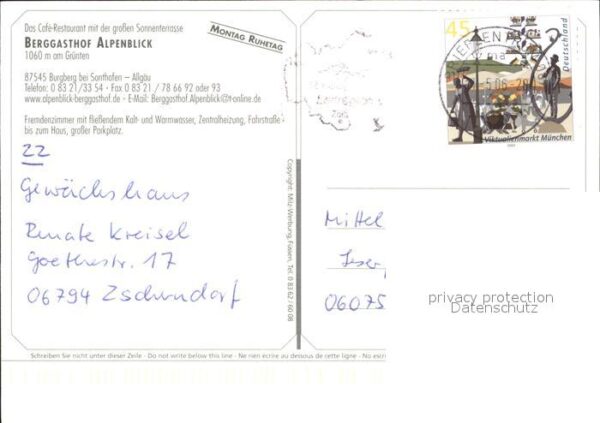 Das Café-Restaurant mit der großen Sonnenterrasse
BERGGASTHOF ALPENBLICK
1060 m am Grünten
MONTAG RUHETAG
87545 Burgberg bei Sonthofen – Allgäu
Telefon: 0 83 21/33 54 • Fax 0 83 21 / 78 66 92 oder 93
www.alpenblick-berggasthof.de • E-Mail: Berggasthof.Alpenblick@t-online.de
Fremdenzimmer mit fließendem Kalt- und Warmwasser, Zentralheizung, Fahrstraße
bis zum Haus, großer Parkplatz.
22
Gewächshaus
Renate Kreisel
Goethestr. 17
06794 Zschorndorf
Copyright: Milz-Werbung, Füssen, Tel. 0 83 62 / 60 08
45
Deutschland
Viktualienmarkt München
Mittel
06075
privacy protection
Datenschutz
Schreiben Sie nicht unter dieser Zeile - Do not write below this line - Ne rien ecrire au dessous de cette ligne - No escr